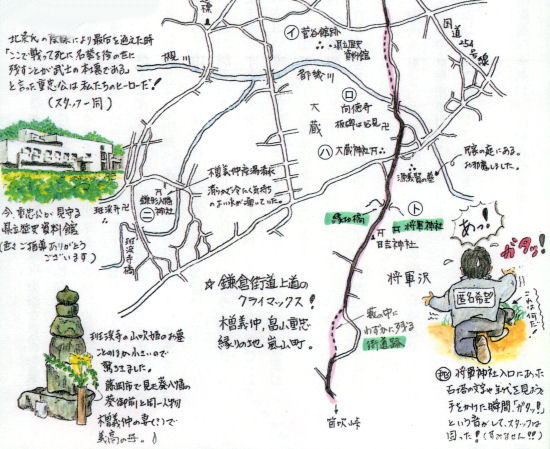 北条氏の陰謀により最后を迎えた時
「ここで戦って死に名誉を後の世に
残すことが武士の本懐である。」
と言った重忠公は私たちのヒーローだ!
(スタッフ一同)
イ 菅谷館跡
県立歴史
資料館
国道
254
号線
槻川
都幾川
ロ 向徳寺
板碑は必見
大蔵
ハ 大蔵神社
民家の庭にある。
お邪魔しました。
源義賢の墓
木曽義仲産湯清水
鎌形八幡
神社
ニ
班渓寺
班渓寺橋
今、重忠公が見守る
県立歴史資料館
ございます)
縁切橋
ト
将軍神社
日吉神社
将軍沢
あっ!
ガタッ!
匿名希望
これは何だ?
☆ 鎌倉街道上道の
クライマックス!
木曽義仲,畠山重忠
縁りの地 嵐山町。
藪の中に
わずかに残る
街道跡
笛吹峠
班渓寺の山吹姫のお墓
驚きました。
藤岡市で見た葵八幡の
葵御前と同一人物
木曽義仲の妻(?)で
義高の母。
将軍神社入口にあった
石塔の文字や年代を見ようと
手をかけた瞬間「ガタッ!」
という音がして、スタッフは
困った!(すみません!!)